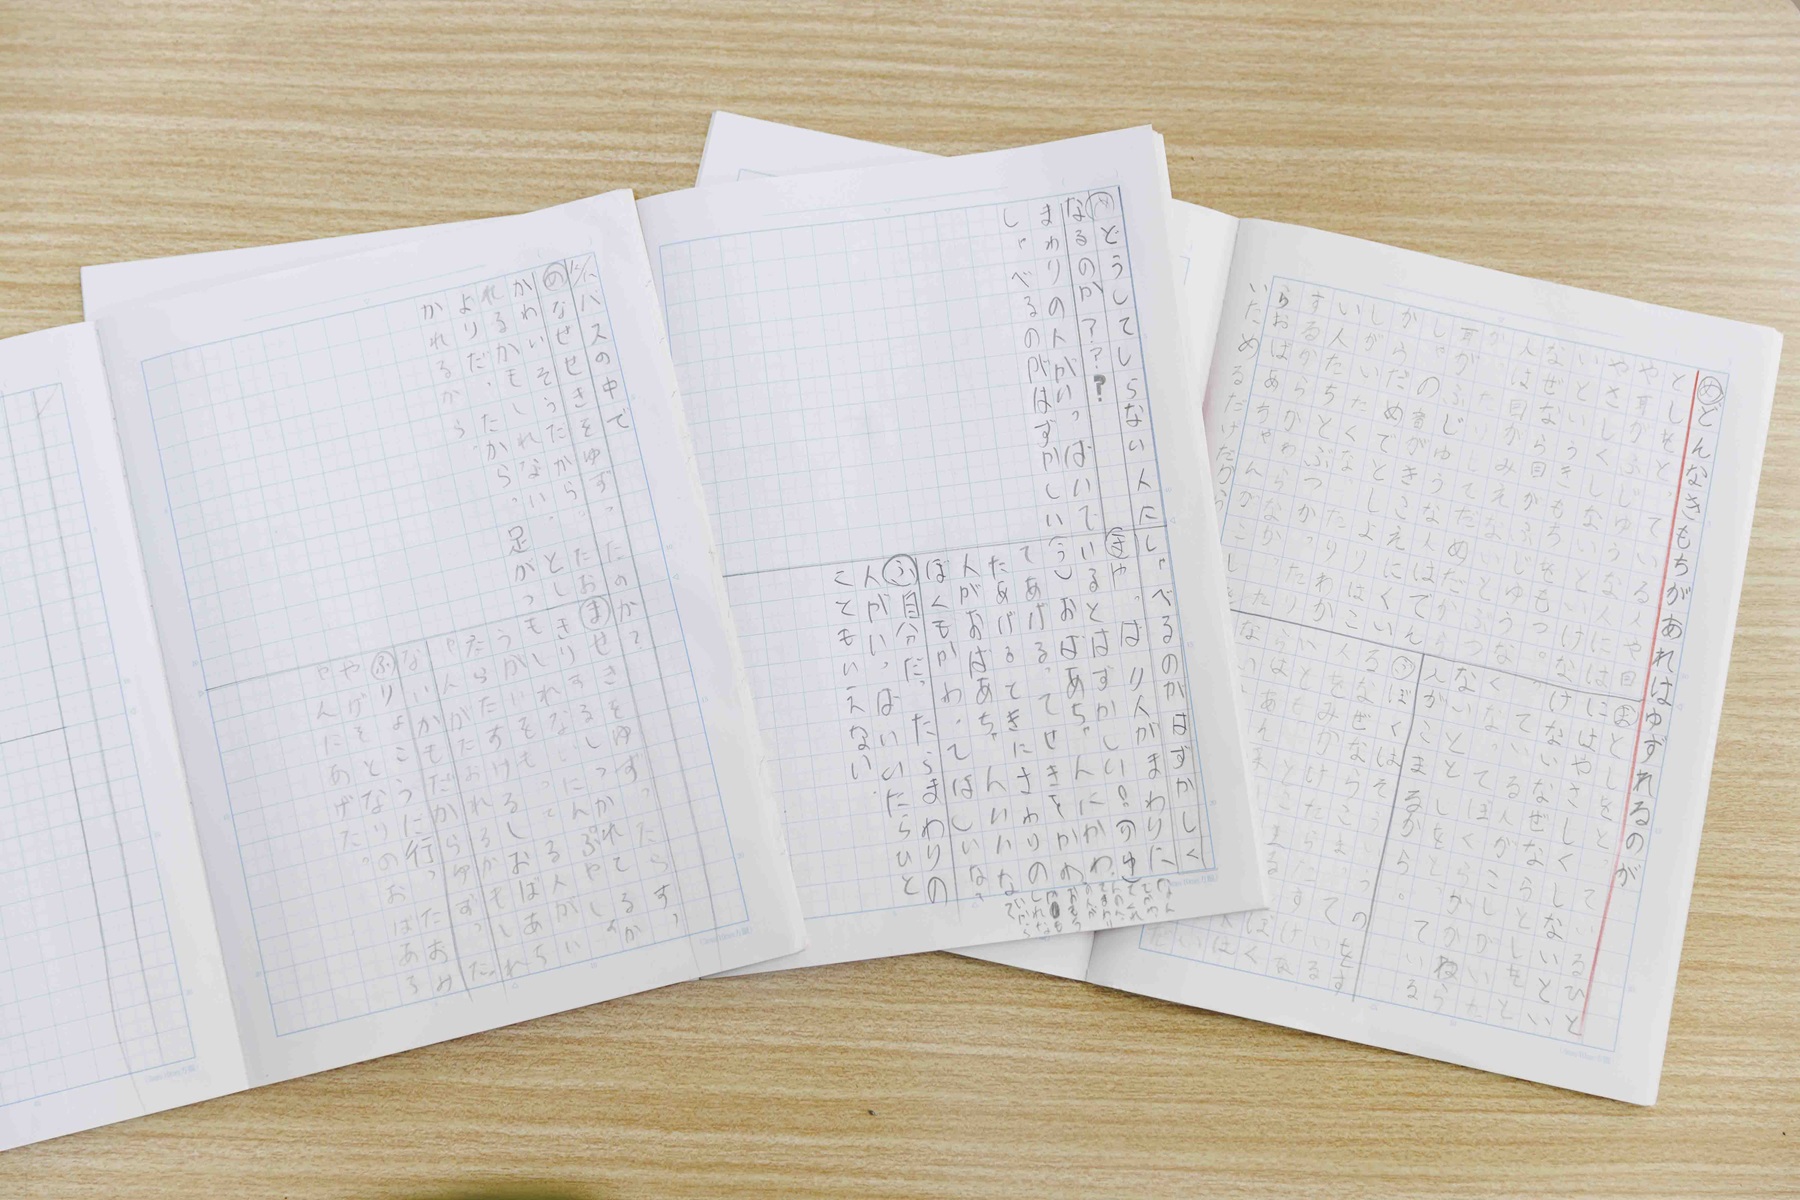 バスの中で
めなぜせきをゆずったのか?
かわいそうだから。たお
れるかもしれない。とし
よりだ。だから、足がつ
かれるから。
ませきをゆずったらすっ
きりするしつかれてるか
もしれないにんぷやしょ
うがいをもってる人がい
たらたすけるしおばあち
ゃんがたおれるかもしれ
ないかもだからゆずった。
ふりょこうに行ったおみ
やげをとなりのおばあち
ゃんにあげた。
めどうしてしらない人に
しゃべるのがはずかしく
なるのか???
まわりの人がいっぱいで
しゃべるのがはずかしい
まやっぱり人がまわりに
いるとはずかしい?
しおばあちゃんにかわっ
てあげる。ってせきをかわ
たあげるときにまわりの
人がおばあちゃんいいな
ぼくもかわってほしいな。
ふ自分だったらまわりの
人がいっぱいいたらひと
こともいえない。
めどんなきもちがあればゆずれるのが
としをとっている人や目
や耳がふじゆうな人には
やさしくしないといけな
いといううきもちをもつ。
なぜなら目がふじゆうな
人は目がみえないとぶつ
かったりしてだめだから
耳がふじゆうな人はでん
しゃの音がきこえにくい
からだめでとしよりはこ
しがいたくなったりわか
い人たちとぶつかったり
するからかわらなかった
らおばあちゃんがこしを
いためるだけだから
まとしをとっているひと
にはやさしくしないとい
けないなぜならとしをと
っている人がこしがいた
くなってぼくらがかねら
ないととしをとっている
人がこまるから。
ふぼくはそういうのをす
るなぜならこまっている
人をみかけたらたすけな